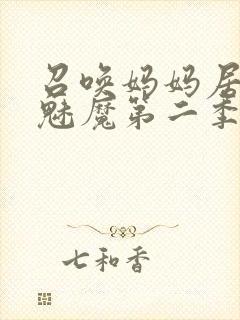 召唤妈妈居
魅魔第二季
七和香